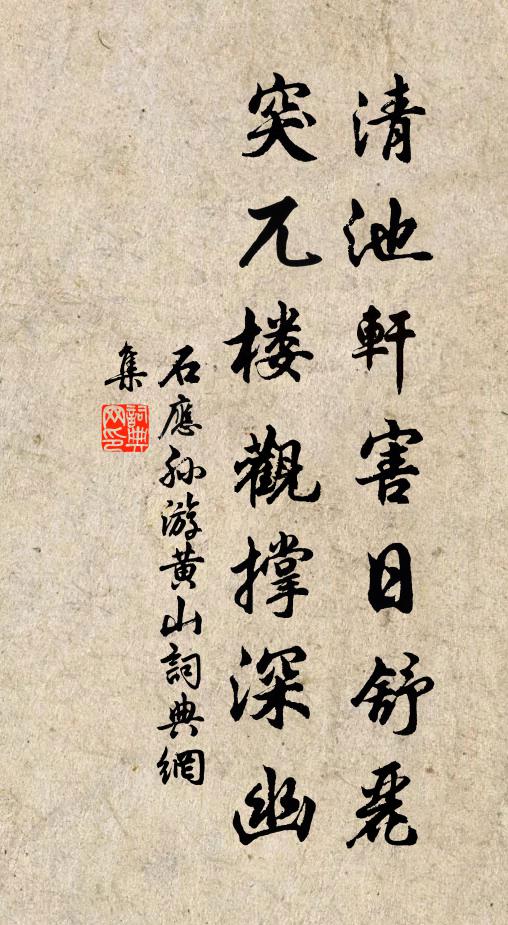 清池軒害日舒麗
突兀楼觀撑深幽
石應孙游黄山詞典網
集
詞典
网印